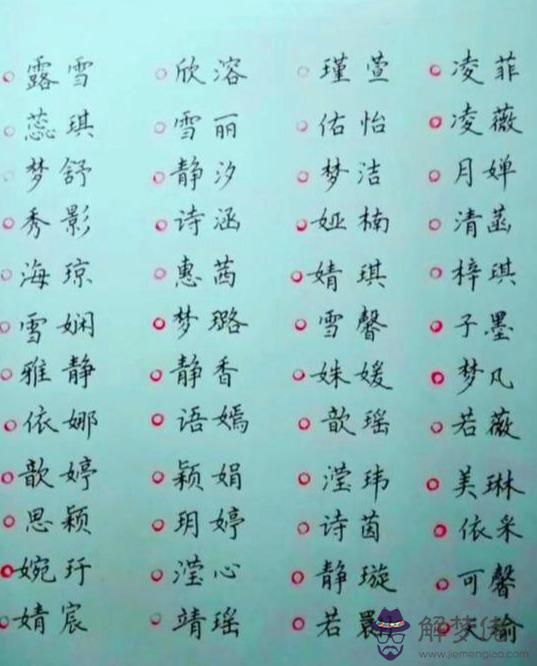 露雪 欣溶 瑾萱 凌菲
蕊琪 雪丽 佑怡 凌薇
梦舒 静汐 梦洁 月婵
秀影 诗涵 娅楠 清菡
海琼 惠茜 婧琪 梓琪
雪娴 梦璐 雪馨 子墨
雅静 静香 姝媛 梦凡
依娜 语嫣 歆瑶 若薇
歆婷 颖娟 滢玮 美琳
思颖 玥婷 诗茵 依采
婉玗 滢心 静璇 可馨
婧宸 靖瑶 若
解梦佬
www.jiemenglao.com